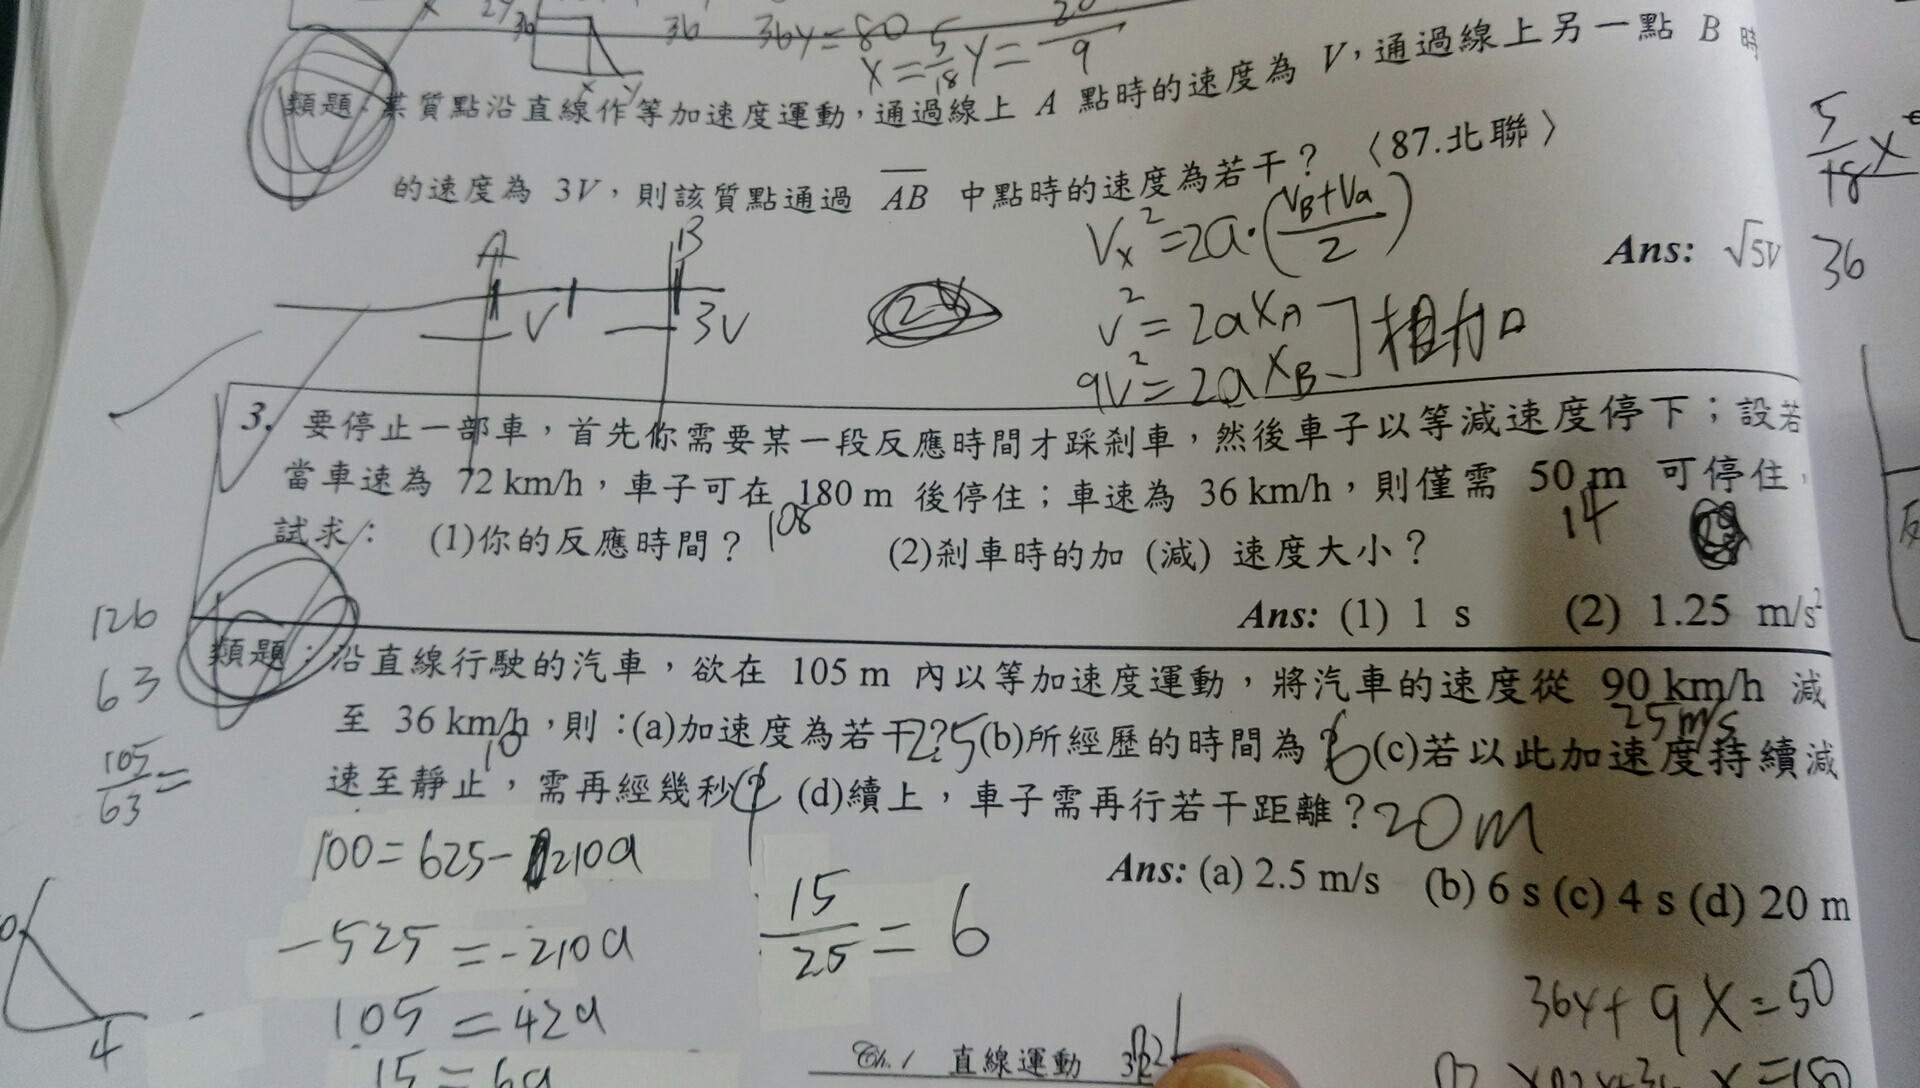 36 36y=80
x=5/18 y=20/9
類題：某質點沿直線作等加速度運動，通過線上 A 點時的速度為 V，通過線上另一點 B 時
的速度為 3V，則該質點通過 AB 中點時的速度為若干？〈87.北聯〉
Ans: √5V
A B
V 3V
Vx²=2a·(VB+Va/2)
V²=2aXA
9V²=2aXB
相加
5/18 x
36
3. 要停止一部車，首先你需要某一段反應時間才踩剎車，然後車子以等減速度停下；設若
當車速為 72 km/h，車子可在 180 m 後停住；車速為 36 km/h，則僅需 50 m 可停住，
試求： (1)你的反應時間？ (2)剎車時的加 (減) 速度大小？
108 14
Ans: (1) 1 s (2) 1.25 m/s²
126
63
105/63=
類題：沿直線行駛的汽車，欲在 105 m 內以等加速度運動，將汽車的速度從 90 km/h 減
25m/s
至 36 km/h，則：(a)加速度為若干？2.5(b)所經歷的時間為？6(c)若以此加速度持續減
10
速至靜止，需再經幾秒？(d)續上，車子需再行若干距離？20m
Ans: (a) 2.5 m/s (b) 6 s (c) 4 s (d) 20 m
100=625-210a
-525=-210a
105=42a
15=6a
15/25=6
4
36y+9x=50
Ch.1 直線運動